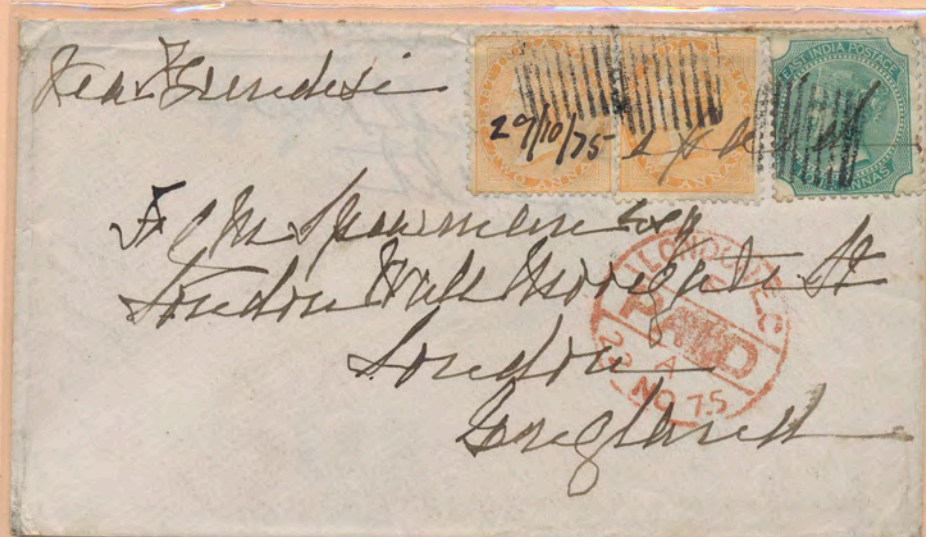 Via Brindisi
EAST INDIA POSTAGE
TWO ANNAS
TWO ANNAS
ANNAS
29/10/75
F C M Spearman Esq
London Wall Moorgate St
London
England
LONDON E.C
PAID
A
22 NO 75